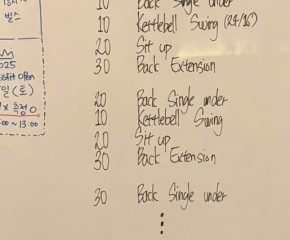 10 Back Single under
10 Kettlebell Swing (24/16)
20 Sit up
30 Back Extension
20 Back Single under
10 Kettlebell Swing
20 Sit up
30 Back Extension
30 Back Single under
2025
Open
일 (토)
~ 13:00